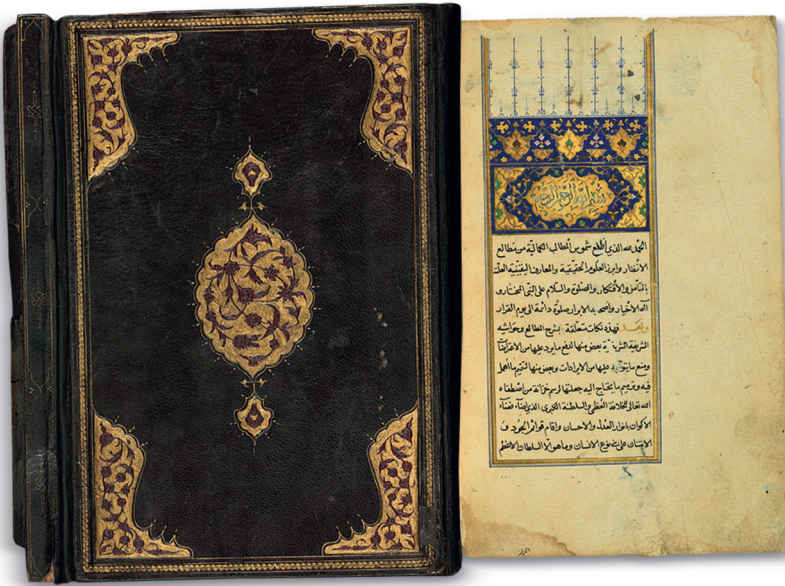 بسم الله الرحمن الرحيم
الحمد لله الذي اطلع شموس المطالب الكمالية من مطالع
الانظار وابرز العلوم الحقيقية والمعارف اليقينية
بالتأمل والافكار والصلوة والسلام على النبي المختار و
آله الاخيار واصحابه الابرار صلوة دائمة الى يوم القرار
وبعد فهذه نكات متعلقة بشرح المطالع وحواشيه
الشريفة الشريفية بعض منها لدفع ما يرد عليها من
ومنع ما يتوجه عليها من الايرادات وبعض منها لتتميم ما اهمل
فيه وترميم ما يحتاج اليه جعلتها لرسم خزانة من اصطفاه
الله تعالى للخلافة العظمى والسلطنة الكبرى الذي اضاء
الاكوان بانوار العدل والاحسان واقام قوائم الجود و
الامتنان على بني نوع الانسان وما هو الا السلطان الاعظم